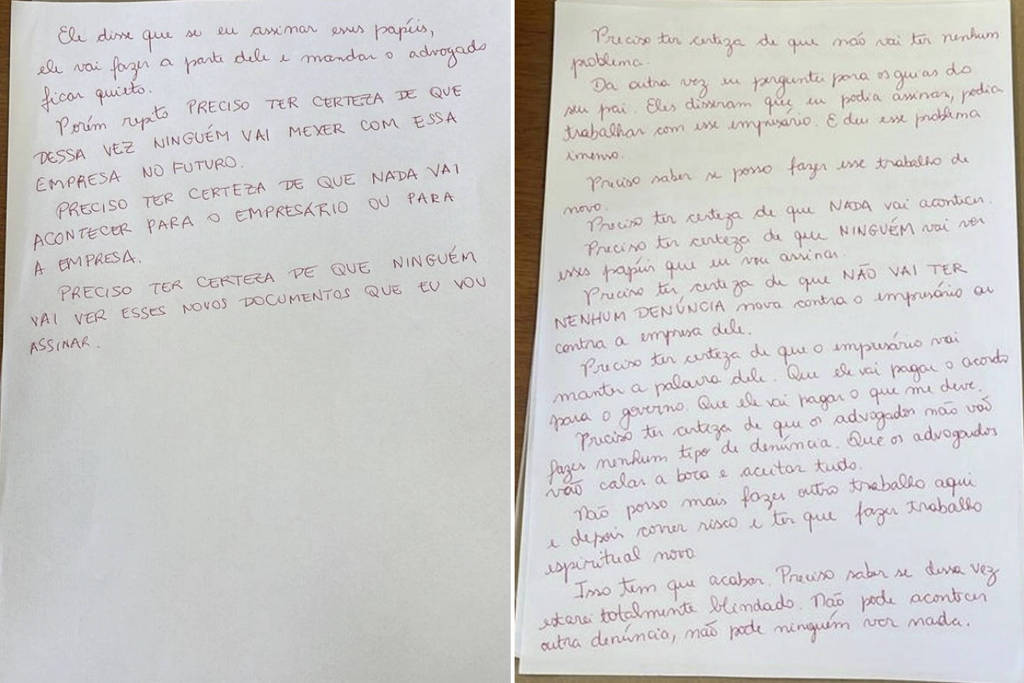 Ele disse que se eu assinar esses papéis,
ele vai fazer a parte dele e mandar o advogado
ficar quieto.
Porém repito PRECISO TER CERTEZA DE QUE
DESSA VEZ NINGUÉM VAI MEXER COM ESSA
EMPRESA NO FUTURO.
PRECISO TER CERTEZA DE QUE NADA VAI
ACONTECER PARA O EMPRESÁRIO OU PARA
A EMPRESA.
PRECISO TER CERTEZA DE QUE NINGUÉM
VAI VER ESSES NOVOS DOCUMENTOS QUE EU VOU
ASSINAR.
Preciso ter certeza de que não vai ter nenhum
problema.
Da outra vez eu perguntei para os guias do
seu pai. Eles disseram que eu podia assinar, podia
trabalhar com esse empresário. E deu esse problema
imenso.
Preciso saber se posso fazer esse trabalho de
novo.
Preciso ter certeza de que NADA vai acontecer.
Preciso ter certeza de que NINGUÉM vai ver
esses papéis que eu vou assinar.
Preciso ter certeza de que NÃO VAI TER
NENHUM DENÚNCIA nova contra o empresário ou
contra a empresa dele.
Preciso ter certeza de que o empresário vai
manter a palavra dele. Que ele vai pagar o acordo
para o governo. Que ele vai pagar o que me deve.
Preciso ter certeza de que os advogados não vão
fazer nenhum tipo de denúncia. Que os advogados
vão calar a boca e aceitar tudo.
Não posso mais fazer outro trabalho aqui
e depois correr risco e ter que fazer trabalho
espiritual novo
Isso tem que acabar. Preciso saber se dessa vez
estarei totalmente blindado. Não pode acontecer
outra denúncia, não pode ninguém ver nada.